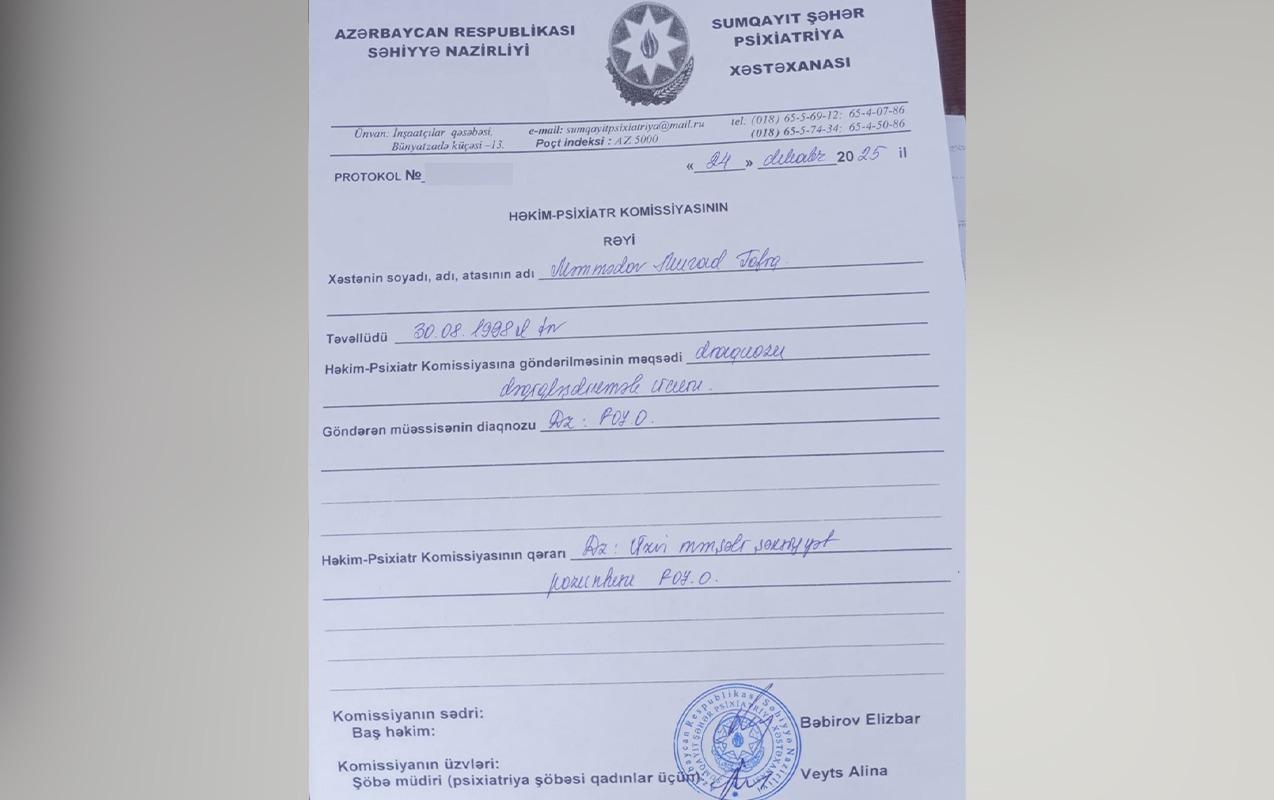 AZƏRBAYCAN RESPUBLİKASI
SƏHİYYƏ NAZİRLİYİ
SUMQAYIT ŞƏHƏR
PSİXİATRİYA
XƏSTƏXANASI
Ünvan: İnşaatçılar qəsəbəsi,
Bünyatzadə küçəsi –13.
e-mail: sumqayitpsixiatriya@mail.ru
Poçt indeksi : AZ 5000
tel. (018) 65-5-69-12; 65-4-07-86
(018) 65-5-74-34; 65-4-50-86
PROTOKOL №
« 24 » dekabr 2025 il
HƏKİM-PSİXİATR KOMİSSİYASININ
RƏYİ
Xəstənin soyadı, adı, atasının adı Məmmədov Murad
Təvəllüdü 30.08.1998
Həkim-Psixiatr Komissiyasına göndərilməsinin məqsədi diaqnozu
Göndərən müəssisənin diaqnozu Dz: F07.0.
Həkim-Psixiatr Komissiyasının qərarı Dz: Üzvi mənşəli şəxsiyyət
pozuntusu F07.0.
Komissiyanın sədri:
Baş həkim:
Bəbirov Elizbar
Komissiyanın üzvləri:
Şöbə müdiri (psixiatriya şöbəsi qadınlar üçün)
Veyts Alina
Azərbaycan Respublikası Səhiyyə Nazirliyi
SUMQAYIT ŞƏHƏR PSİXİATRİYA XƏSTƏXANASI